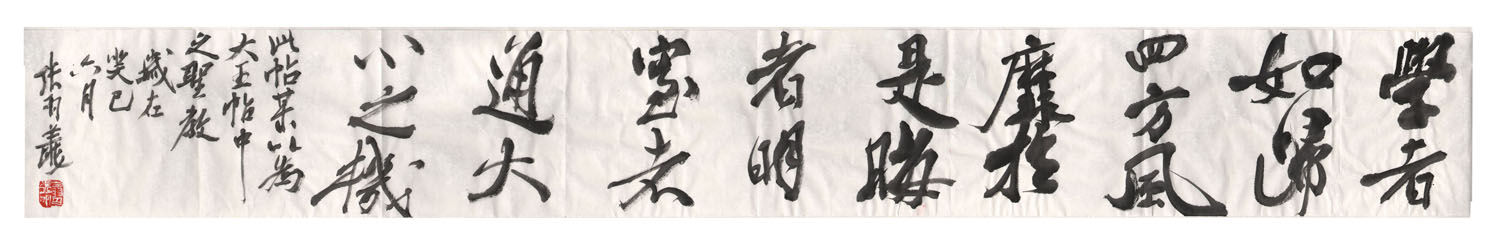 學者
如歸
四方風
靡於
是晦
者明
窒者
通大
之機
此帖某以為
大王帖中
之聖教
歲在
癸巳
六月
張羽